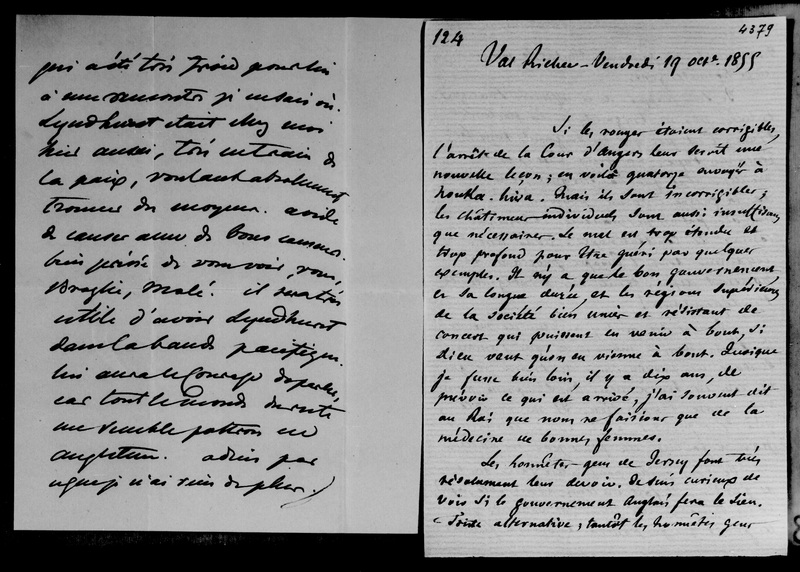 qui a été très froid pour lui
à une rencontre je ne sais où.
Lyndhurst était chez moi
hier aussi, très en train de
la paix, voulant absolument
trouver des moyens. avide
de causer avec de bons causeurs.
bien pressé de vous voir, vous,
Broglie, Molé. il sera très
utile d'avoir Lyndhurst
dans la bande pacifique.
lui aura le courage de parler,
car tout le monde du reste
me semble poltron en
angleterre. adieu par
que je n'ai rien de plus.)
124
4379
Val Richer - Vendredi 19 octe 1855
Si les rouges étaient corrigibles,
l'arrêt de la Cour d'Angers leur seroit une
nouvelle leçon ; en voilà quatorze envoyés à
Nouka-hiva. Mais ils sont incorrigibles ;
les châtimens individuels sont aussi insuffisans
que nécessaires. Le mal est trop étendu et
trop profond pour être guéri par quelques
exemples. Il n'y a que le bon gouvernement,
et sa longue durée, et les régions supérieures
de la société bien unies et résistant de
concert qui puissent en venir à bout, si
Dieu veut qu'on en vienne à bout. Quoique
je fusse bien loin, il y a dix ans, de
prévoir ce qui est arrivé, j'ai souvent dit
au Roi que nous ne faisions que de la
médecine de bonnes femmes.
Les honnêtes gens de Jersey font très
résolument leur devoir. Je suis curieux de
voir si le gouvernement Anglais fera le sien.
Triste alternative ; tantôt les honnêtes gens